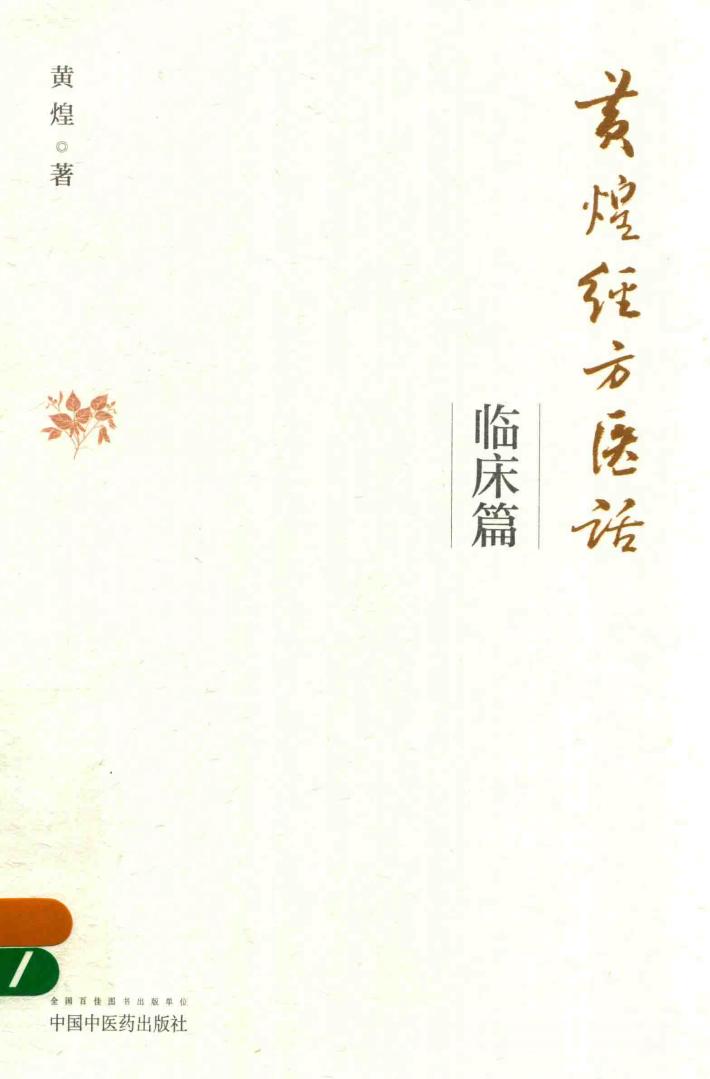 黄煌经方医话
临床篇
黄煌◎著
全国百佳图书出版单位
中国中医药出版社